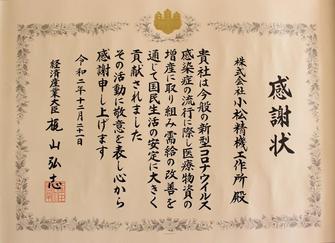 感謝状
株式会社小松精機工作所 殿
貴社は今般の新型コロナウイルス
感染症の流行に際し医療物資の
増産に取り組み需給の改善を
通じて国民生活の安定に大きく
貢献されました
その活動に敬意を表し心から
感謝申し上げます
令和二年十二月二十一日
経済産業大臣 梶山弘志